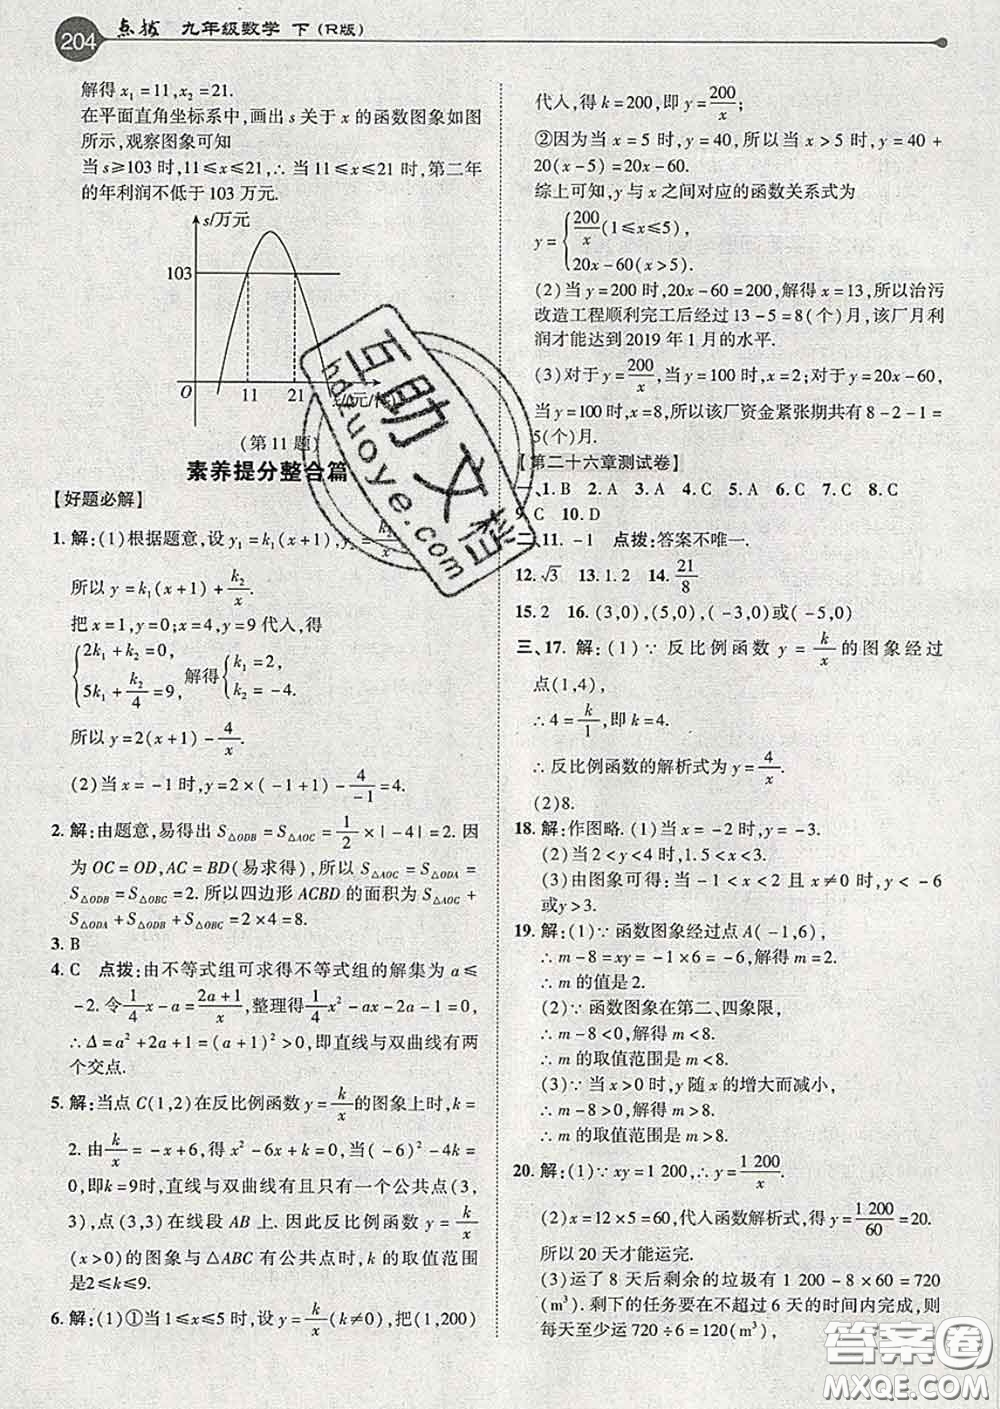 204 点拨 九年级数学 下(R版)
解得 x₁=11,x₂=21.
在平面直角坐标系中,画出 s 关于 x 的函数图象如图
所示,观察图象可知
当 s≥103 时,11≤x≤21,∴ 当 11≤x≤21 时,第二年
的年利润不低于 103 万元.
s/万元
103
O 11 21
(第 11 题)
素养提分整合篇
【好题必解】
1. 解:(1)根据题意,设 y₁=k₁(x+1),y₂=k₂/x
所以 y=k₁(x+1)+k₂/x.
把 x=1,y=0;x=4,y=9 代入,得
{2k₁+k₂=0, 5k₁+k₂/4=9, 解得{k₁=2, k₂=-4.
所以 y=2(x+1)-4/x.
(2)当 x=-1 时,y=2×(-1+1)-4/-1=4.
2. 解:由题意,易得出 S△ODB=S△AOC=1/2×|-4|=2. 因
为 OC=OD,AC=BD(易求得),所以 S△AOC=S△ODA=
S△ODB=S△OBC=2. 所以四边形 ACBD 的面积为 S△AOC+
S△ODA+S△ODB+S△OBC=2×4=8.
3. B
4. C 点拨:由不等式组可求得不等式组的解集为 a≤
-2. 令1/4x-a=2a+1/x,整理得1/4x²-ax-2a-1=0,
∴Δ=a²+2a+1=(a+1)²>0,即直线与双曲线有两
个交点.
5. 解:当点 C(1,2)在反比例函数 y=k/x的图象上时,k=
2. 由k/x=-x+6,得 x²-6x+k=0,当(-6)²-4k=
0,即 k=9时,直线与双曲线有一个公共点(3,
3),点(3,3)在线段 AB 上. 因此反比例函数 y=k/x
(x>0)的图象与△ABC 有公共点时,k 的取值范围
是2≤k≤9.
6. 解:(1)①当 1≤x≤5 时,设 y=k/x(k≠0),把(1,200)
代入,得 k=200,即 y=200/x;
②因为当 x=5 时,y=40,所以当 x>5 时,y=40+
20(x-5)=20x-60.
综上可知,y 与 x 之间对应的函数关系式为
y={200/x(1≤x≤5), 20x-60(x>5).
(2)当 y=200 时,20x-60=200,解得 x=13,所以治污
改造工程顺利完工后经过 13-5=8(个)月,该厂月利
润才能达到 2019 年 1 月的水平.
(3)对于 y=200/x,当 y=100 时,x=2;对于 y=20x-60,
当 y=100 时,x=8,所以该厂资金紧张期共有 8-2-1=
5(个)月.
【第二十六章测试卷】
一、1. B 2. A 3. A 4. C 5. A 6. C 7. C 8. C
9. C 10. D
二、11. -1 点拨:答案不唯一.
12. √3 13. 1. 2 14. 21/8
15. 2 16. (3,0),(5,0),(-3,0)或(-5,0)
三、17. 解:(1)∵ 反比例函数 y=k/x的图象经过
点(1,4),
∴4=k/1,即 k=4.
∴反比例函数的解析式为 y=4/x.
(2)8.
18. 解:作图略. (1)当 x=-2 时,y=-3.
(2)当 2<y<4 时,1. 5<x<3.
(3)由图象可得:当 -1<x<2 且 x≠0 时,y<-6
或 y>3.
19. 解:(1)∵ 函数图象经过点 A(-1,6),
∴m-8=xy=-1×6=-6,解得 m=2.
∴m 的值是 2.
(2)∵ 函数图象在第二、四象限,
∴m-8<0,解得 m<8.
∴m 的取值范围是 m<8.
(3)∵ 当 x>0 时,y 随 x 的增大而减小,
∴m-8>0,解得 m>8.
∴m 的取值范围是 m>8.
20. 解:(1)∵xy=1 200,∴y=1 200/x.
(2)x=12×5=60,代入函数解析式,得 y=1 200/60=20.
所以 20 天才能运完.
(3)运了 8 天后剩余的垃圾有 1 200-8×60=720
(m³). 剩下的任务要在不超过 6 天的时间内完成,则
每天至少运 720÷6=120(m³),
互助文档
hdzuoye.com
答案圈
MXQE.COM